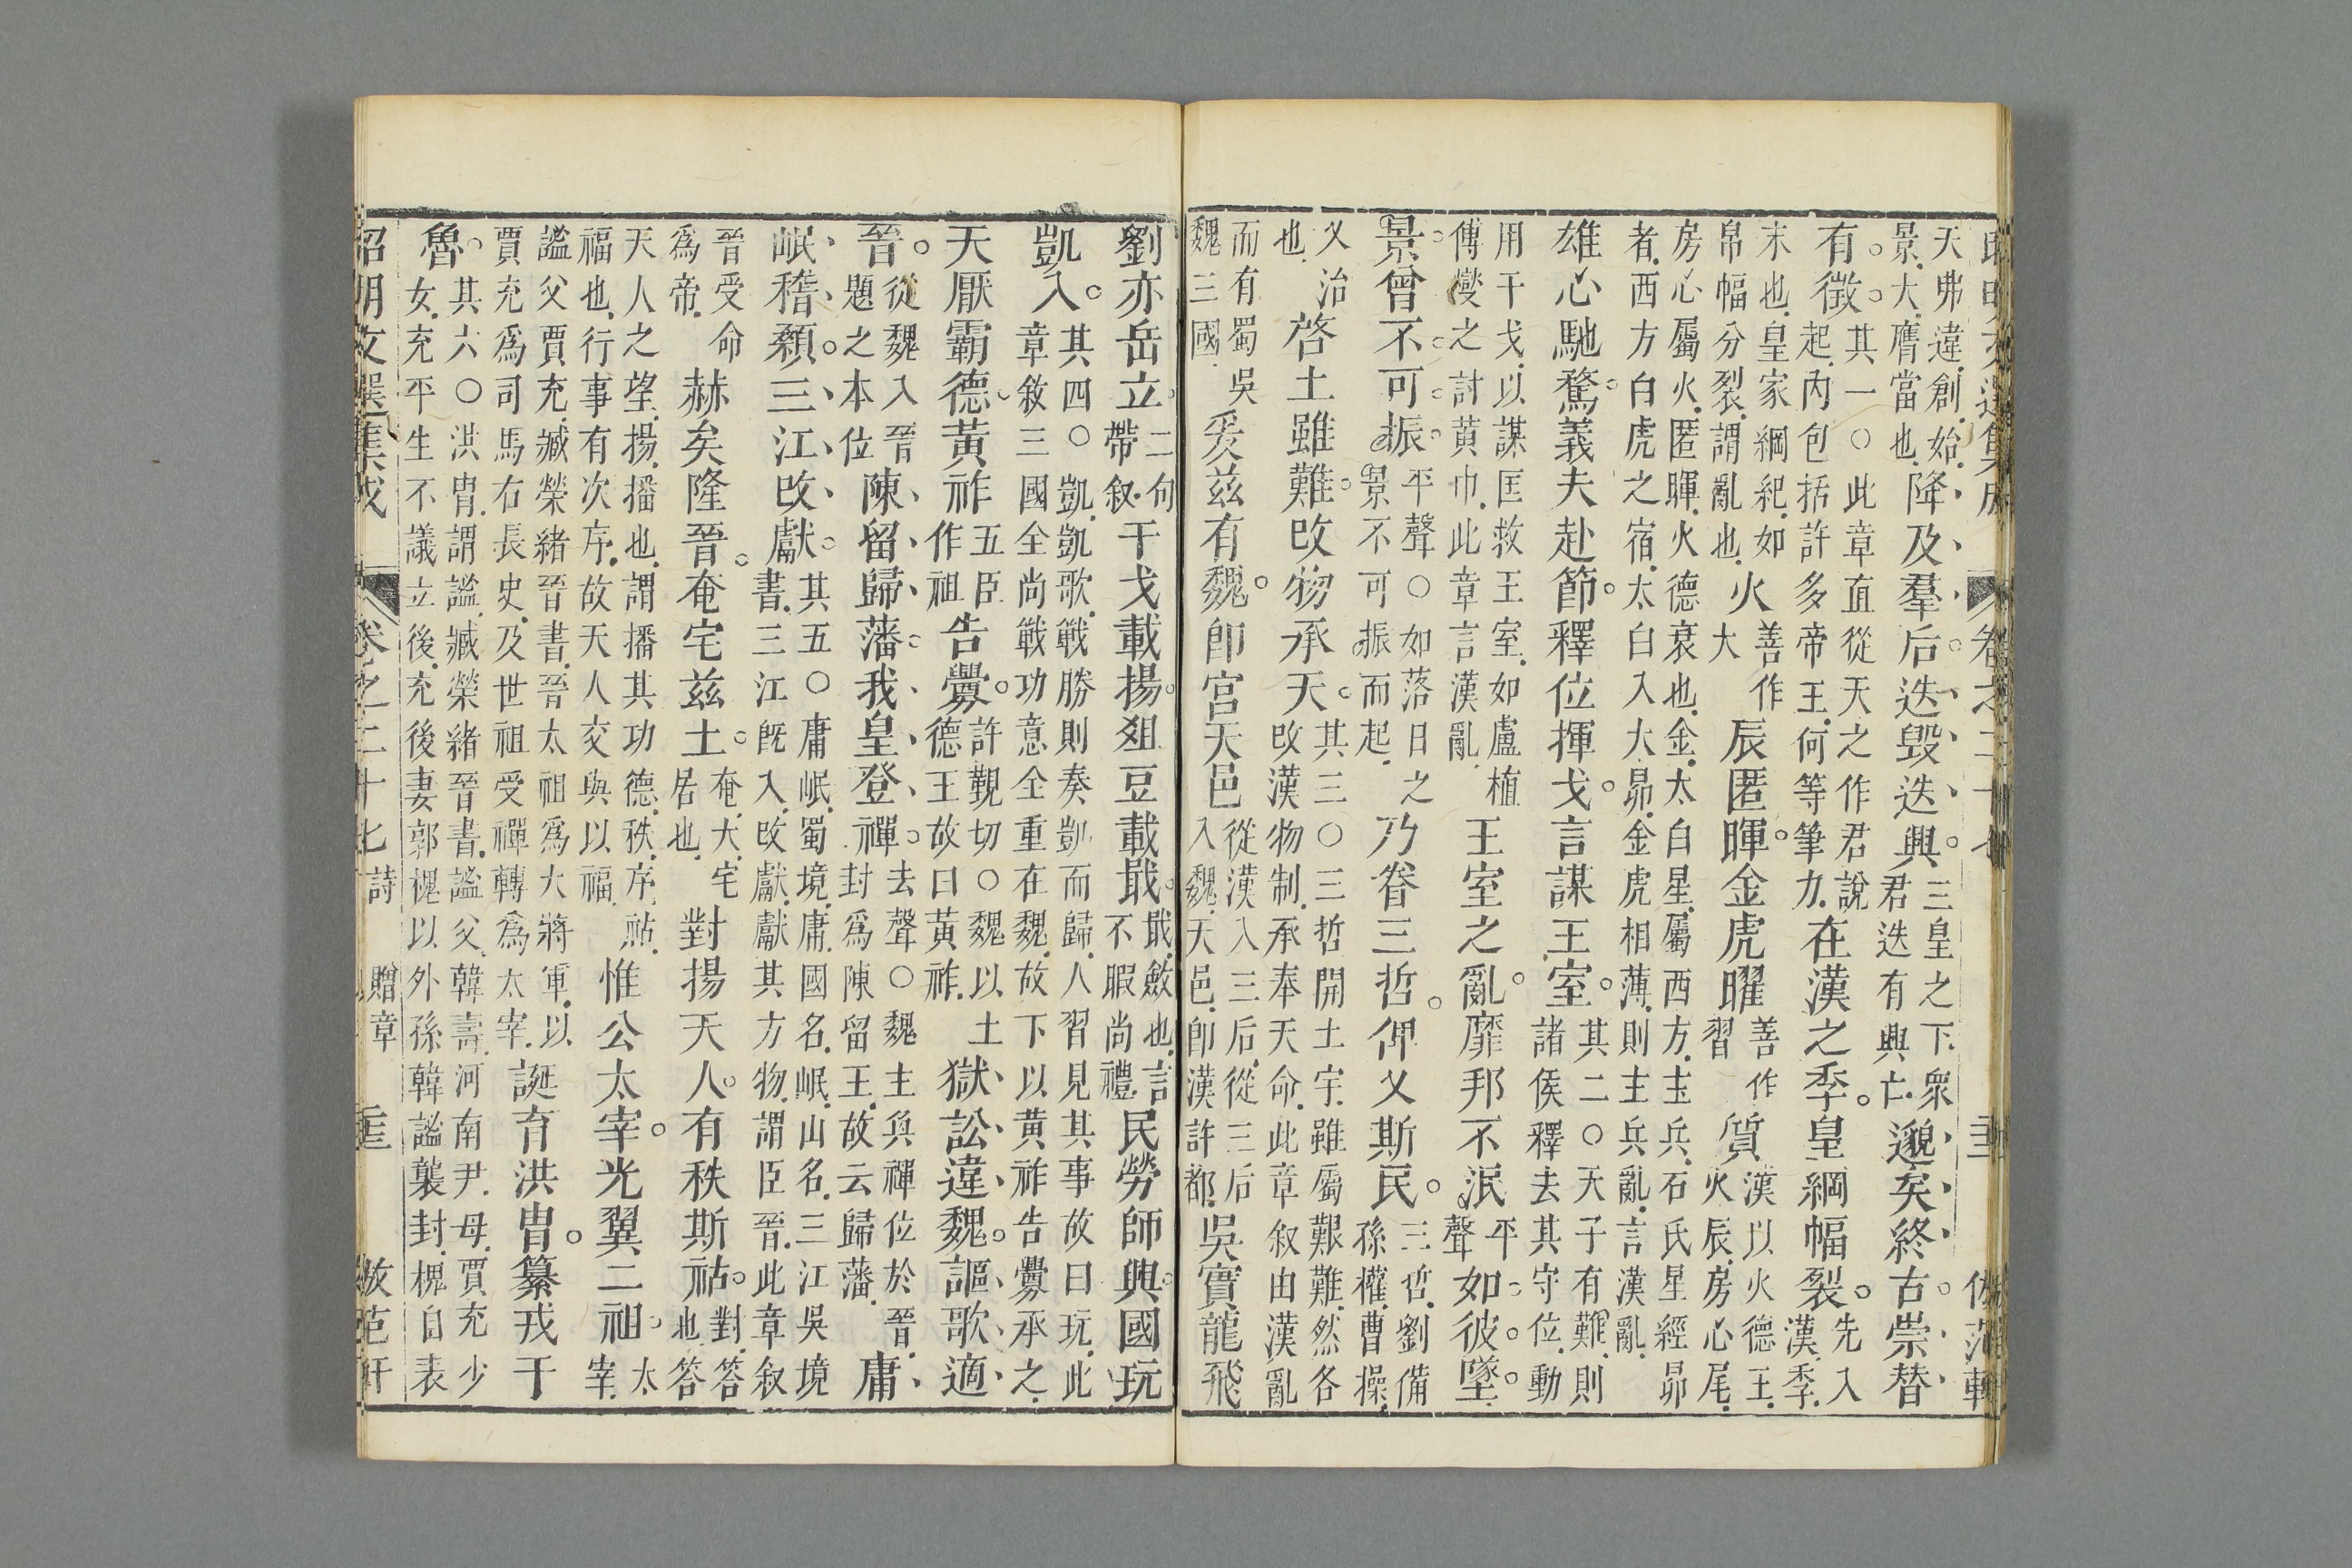 天弗違創始
景大膺當也
降及羣后迭毁迭興
三皇之下衆
君迭有興亡
邈矣終古崇替
有徵
其一○此章直從天之作君說
起內包括許多帝王何等筆力
在漢之季皇綱幅裂
先入
漢季
末也皇家綱紀如
帛幅分裂謂亂也
火
善作
大
辰匿暉金虎曜
善作
習
質
漢以火德王
火辰房心尾
房心屬火匿暉火德衰也金太白星屬西方主兵石氏星經昴
者西方白虎之宿太白入大昴金虎相薄則主兵亂言漢亂
雄心馳騖義夫赴節釋位揮戈言謀王室
其二○天子有難則
諸侯釋去其守位動
用干戈以謀匡救王室如盧植
傅燮之討黃巾此章言漢亂
王室之亂靡邦不泯
平
聲
如彼墜
景曾不可振
平聲○如落日之
景不可振而起
乃眷三哲俾乂斯民
三哲劉備
孫權曹操
乂治
也
啓土雖難改物承天
其三○三哲開土宇雖屬艱難然各
改漢物制承奉天命此章叙由漢亂
而有蜀吳
魏三國
爰茲有魏卽宮天邑
從漢入三后從三后
入魏天邑卽漢許都
吳實龍飛
劉亦岳立
二句
帶叙
干戈載揚俎豆載戢
戢斂也言
不暇尚禮
民勞師興國玩
凱入
其四○凱凱歌戰勝則奏凱而歸人習見其事故曰玩此
章敘三國全尚戰功意全重在魏故下以黃祚告釁承之
天厭霸德黃祚
五臣
作祖
告釁
許覲切○魏以土
德王故曰黃祚
獄訟違魏謳歌適
晉
從魏入晉
題之本位
陳留歸藩我皇登禪
去聲○魏主奐禪位於晉
封爲陳留王故云歸藩
庸
岷稽顙三江改獻
其五○庸岷蜀境庸國名岷山名三江吳境
書三江旣入改獻獻其方物謂臣晉此章叙
晉受命
爲帝
赫矣隆晉奄宅茲土
奄大宅
居也
對揚天人有秩斯祜
對答
也答
天人之望揚播也謂播其功德秩序祜
福也行事有次序故天人交與以福
惟公太宰光翼二祖
太
宰
謐父賈充臧榮緒晉書晉太祖爲大將軍以
賈充爲司馬右長史及世祖受禪轉爲太宰
誕育洪胄纂戎于
魯
其六○洪胄謂謐臧榮緒晉書謐父韓壽河南尹母賈充少
女充平生不議立後充後妻郭槐以外孫韓謐襲封槐自表
昭明文選集成
卷之二十七
詩
贈章